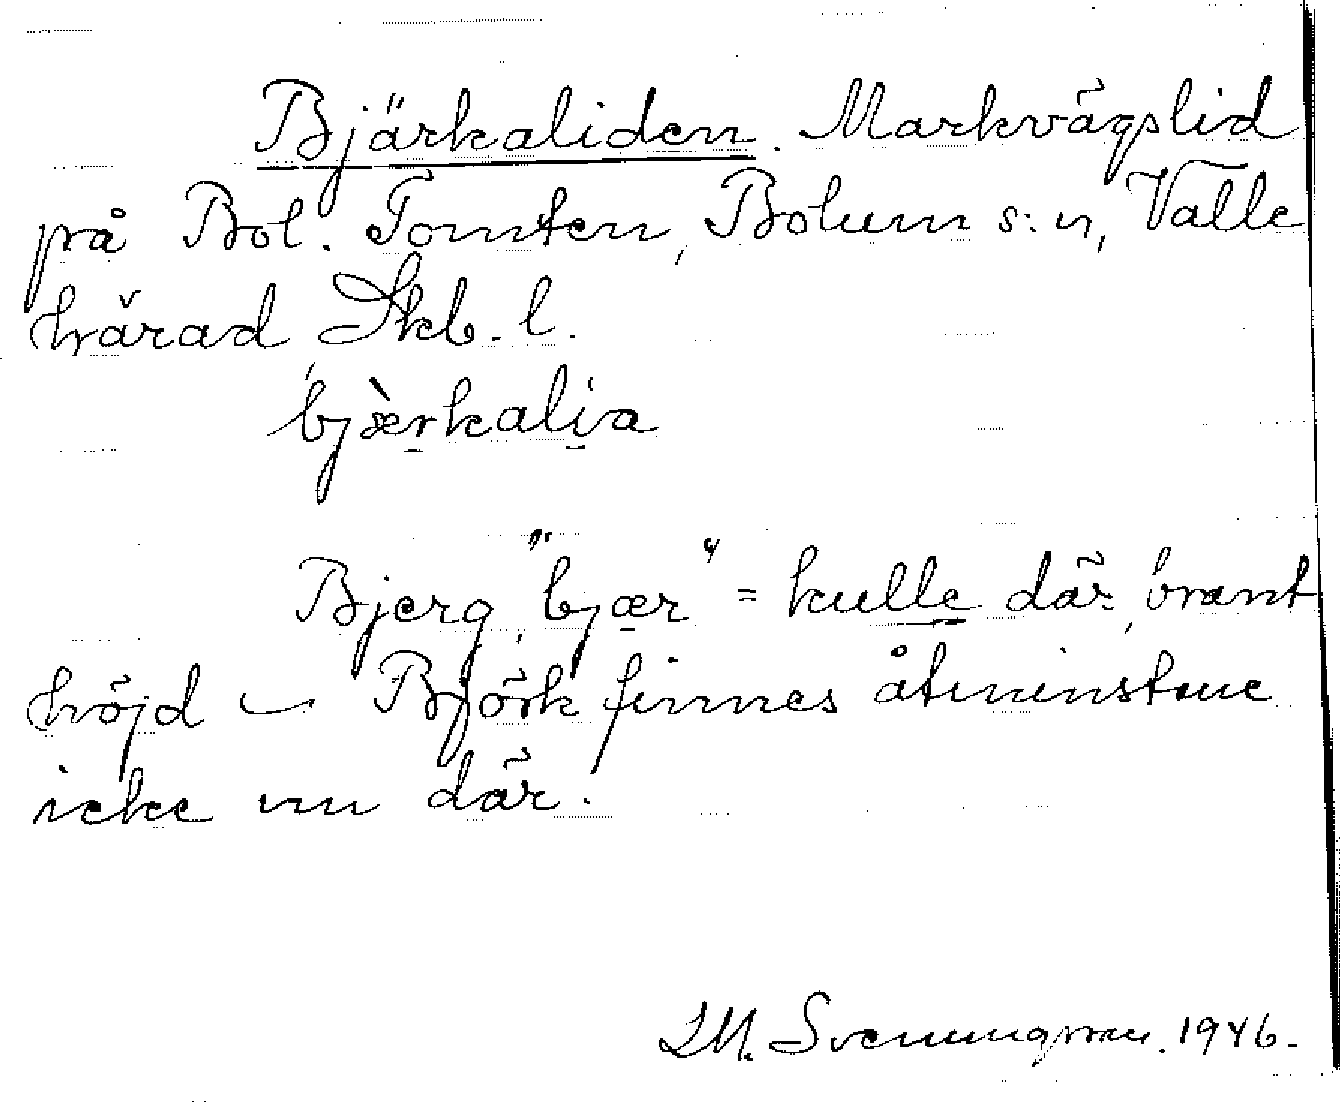 Bjärkaliden. Markvägslid
på Bol. Tomten, Bolum s:n, Valle
härad Skb. l.
bjærkalia
Bjerg, "bjær" = kulle där, brant
höjd – Björk finnes åtminstone
icke nu där.
Svenungsson. 1946.